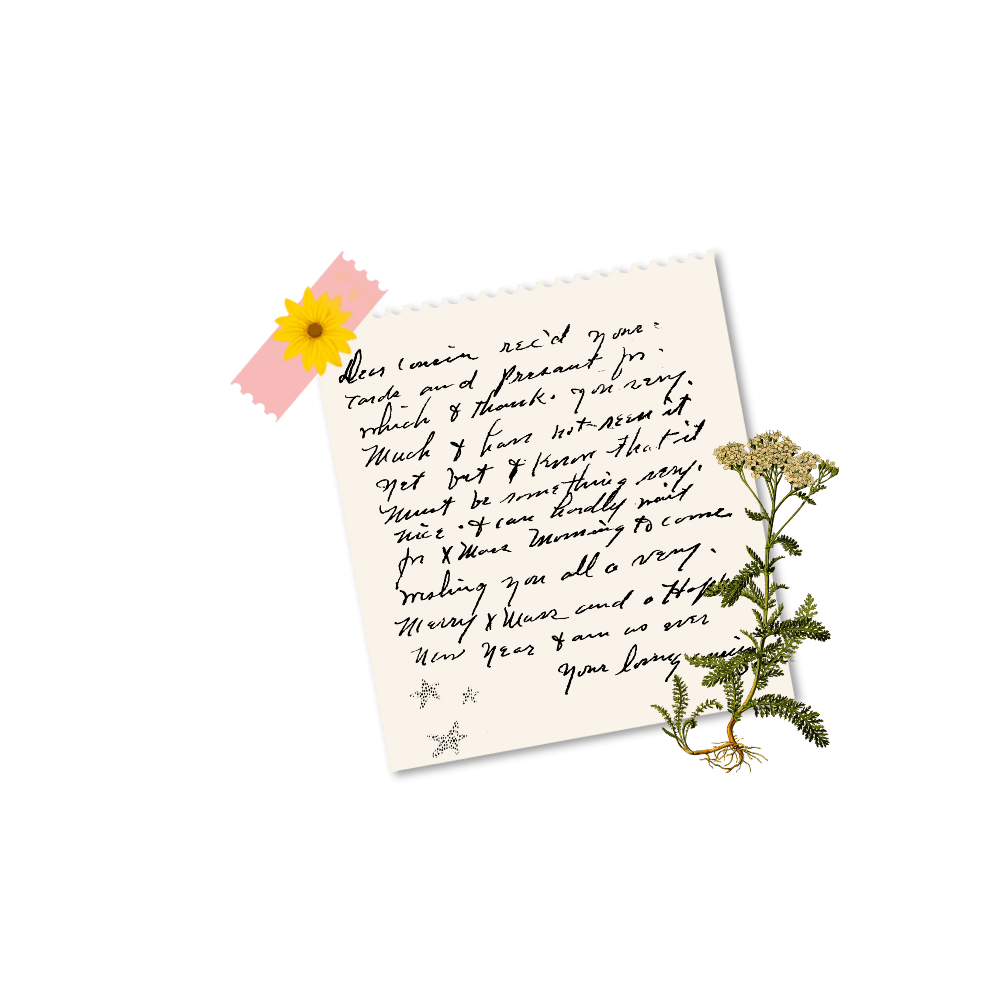 Dear Cousin rec'd your
cards and Presant for
which I thank you very.
Much I have not seen it
yet but I know that it
must be something very.
nice I can hardly wait
for XMass Morning to come
wishing you all a very.
Merry XMass and a Happy
New Year I am as ever
your loving